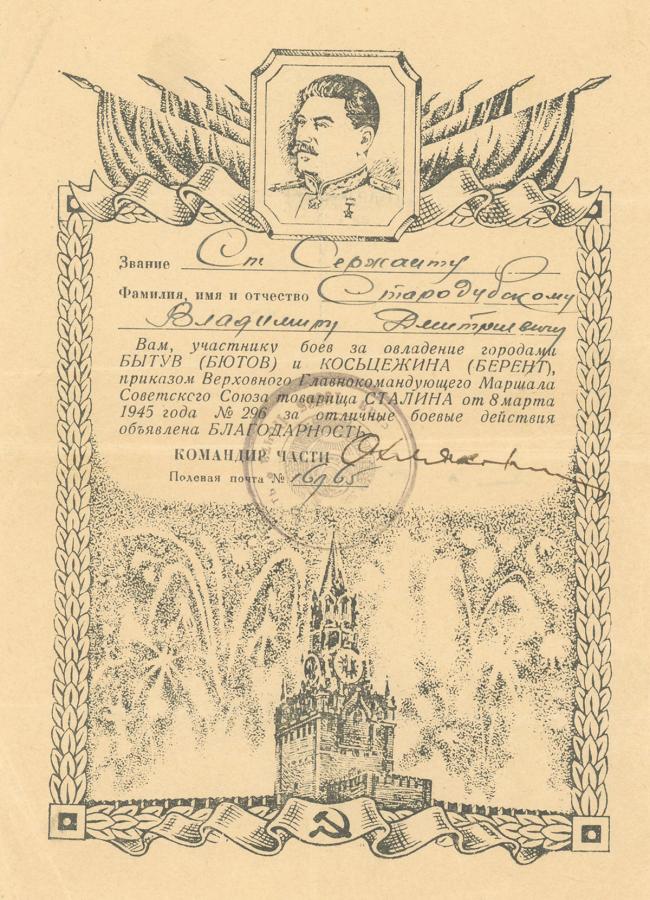 Звание Ст. Сержанту
Фамилия, имя и отчество Стародубскому
Владимиру Дмитриевичу
Вам, участнику боев за овладение городами
БЫТУВ (БЮТОВ) и КОСЬЦЕЖИНА (БЕРЕНТ),
приказом Верховного Главнокомандующего Маршала
Советского Союза товарища СТАЛИНА от 8 марта
1945 года № 296 за отличные боевые действия
объявлена БЛАГОДАРНОСТЬ.
КОМАНДИР ЧАСТИ
Полевая почта №